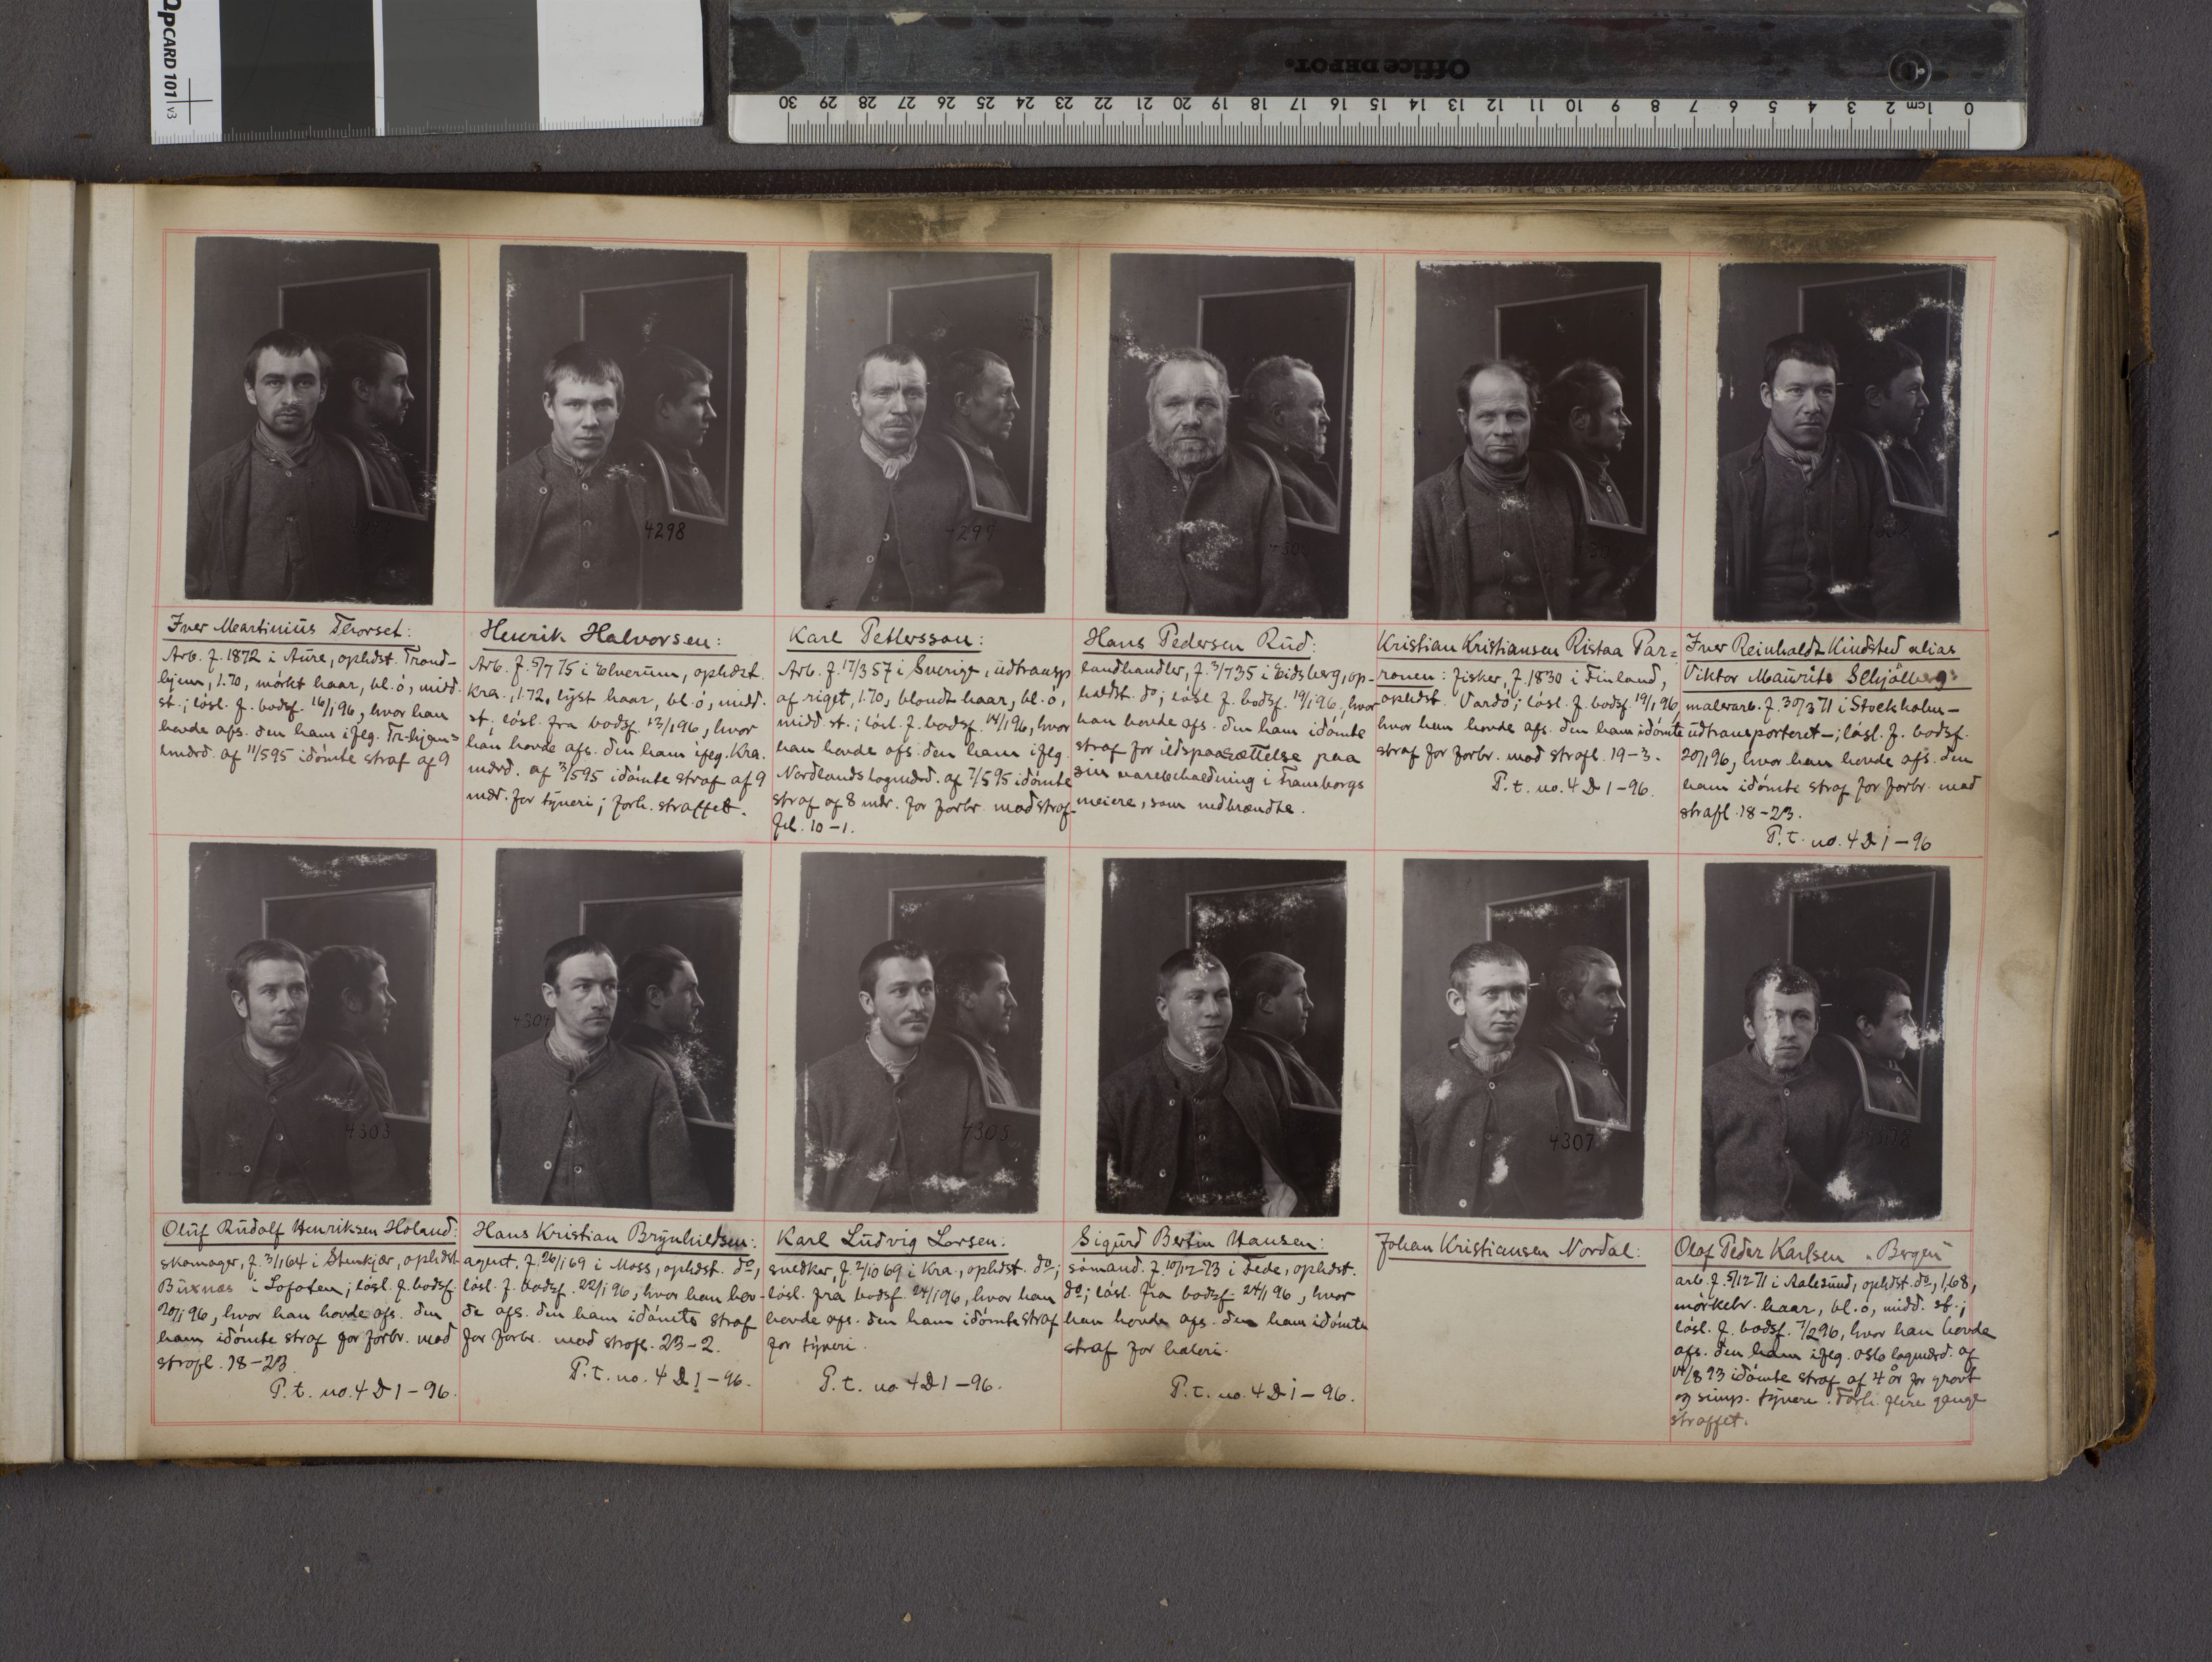 OPCARD 101 v3
Office DEPOT
0 1cm 2 3 4 5 6 7 8 9 10 11 12 13 14 15 16 17 18 19 20 21 22 23 24 25 26 27 28 29 30
4298
4299
Iver Meartinius Thorset:
Arb. f. 1872 i Aure, opholdst. Trond-
hjem, 1.70, mörkt haar, bl. ö, midd.
st.; lösl. f. bodsf. 16/1 96, hvor han
havde afs. den ham ifög. Tr.hjems
hmdrd. af 11/5 95 idömte straf af 9
Henrik Halvorsen:
Arb. f. 5/7 75 i Elverum, opholdst.
Kra., 1.72, lyst haar, bl. ö, midd.
st. lösl. fra bodsf. 13/1 96, hvor
han havde afs. den ham ifög. Kra.
mdrd. af 3/5 95 idömte straf af 9
mdr. for tyveri; forh. straffet.
Karl Pettersson:
Arb. f. 17/3 57 i Sverige, udtransp
af riget, 1.70, blondt haar, bl. ö,
midd. st.; lösl. f. bodsf. 14/1 96, hvor
han havde afs. den ham ifög.
Nordlands lagmdrd. af 7/5 95 idömte
straf af 8 mdr. for forbr. mod straf-
fel. 10-1.
Hans Pedersen Rud:
landhandler, f. 3/7 35 i Eidsberg, op-
holdst. do; lösl. f. bodsf. 19/1 96, hvor
han havde afs. den ham idömte
straf for ildspaasættelse paa
sin varebeholdning i Tramborgs
meieri, som nedbrændte.
Kristian Kristiansen Ristaa Par=
ronen: fisker, f. 1830 i Finland,
opholdst. Vardö; lösl. f. bodsf. 19/1 96,
hvor han havde afs. den ham idömte
straf for forbr. mod strafl. 19-3.
P. t. no. 4 D 1-96.
Iver Reinholdt Kindsted alias
Viktor Mauritz Schjölberg:
malerarb. f. 30/3 71 i Stockholm-
udtransporteret-; lösl. f. bodsf.
20/1 96, hvor han havde afs. den
ham idömte straf for forbr. mod
strafl. 18-23.
P. t. no. 4 D 1-96
4303
4304
4305
4307
Oluf Rudolf Henriksen Holand:
skomager, f. 3/1 64 i Stenkjær, opholdst
Buxnæs i Lofoten; lösl. f. bodsf.
20/1 96, hvor han havde afs. den
ham idömte straf for forbr. mod
strafl. 18-23.
P. t. no. 4 D 1-96.
Hans Kristian Brynhildsen:
agent, f. 26/1 69 i Moss, opholdst. do,
lösl. f. bodsf. 22/1 96, hvor han hav-
de afs. den ham idömte straf
for forbr. mod strafl. 23-2.
P. t. no. 4 D 1-96.
Karl Ludvig Larsen:
snedker, f. 2/10 69 i Kra., opholdst. do;
lösl. fra bodsf. 24/1 96, hvor han
havde afs. den ham idömte straf
for tyveri.
P. t. no. 4 D 1-96.
Sigurd Bertin Hansen:
sömand. f. 10/12 73 i Fede, opholdst.
do; lösl. fra bodsf. 24/1 96, hvor
han havde afs. den ham idömte
straf for hæleri.
P. t. no. 4 D 1-96.
Johan Kristiansen Nordal:
Olaf Peder Karlsen "Bergen"
arb. f. 5/12 71 i Aalesund, opholdst. do, 1,68,
mörkebr. haar, bl. ö, midd. st.;
lösl. f. bodsf. 7/2 96, hvor han havde
afs. den ham ifög. Oslo lagmdrd. af
14/8 93 idömte straf af 4 år for grovt
og simp. tyveri. Forh. flere gange
straffet.